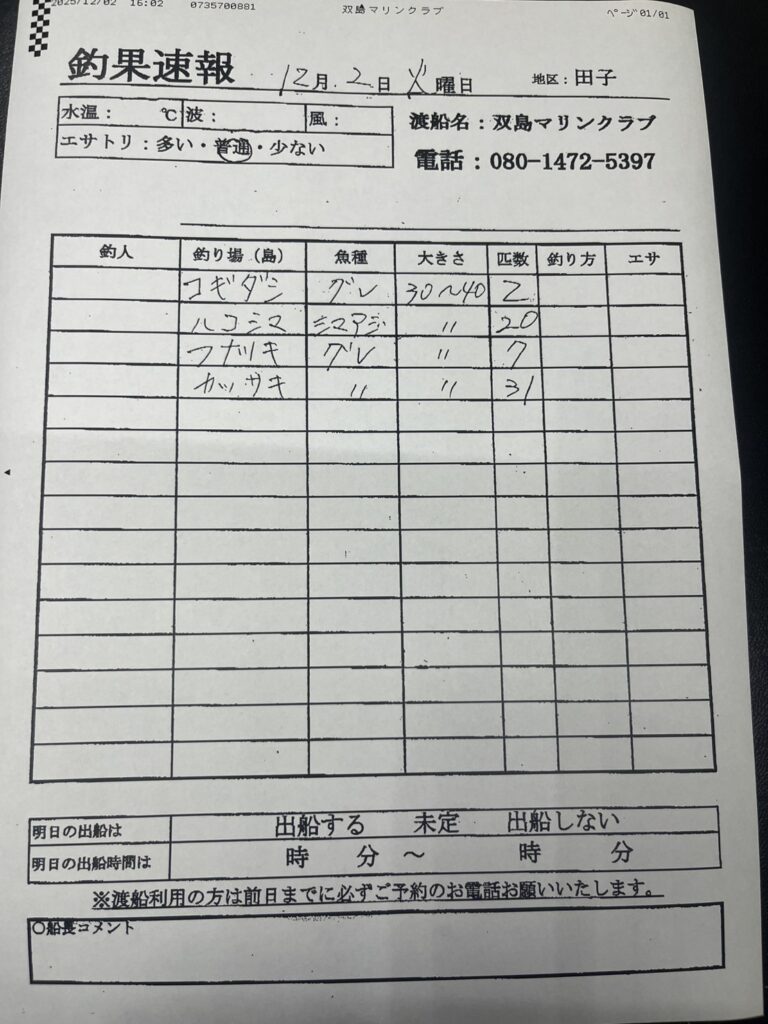 2025/12/02 16:02 0735700881 双島マリンクラブ ﾍﾟｰｼﾞ 01/01
釣果速報 12月 2日 火曜日 地区：田子
水温： ℃ 波： 風：
エサトリ：多い・普通・少ない
渡船名：双島マリンクラブ
電話：080-1472-5397
釣人 釣り場（島） 魚種 大きさ 匹数 釣り方 エサ
コギダシ グレ 30〜40 2
ハコシマ シマアジ 〃 20
フナツキ グレ 〃 7
カツサキ 〃 〃 31
明日の出船は 出船する 未定 出船しない
明日の出船時間は 時 分 〜 時 分
※渡船利用の方は前日までに必ずご予約のお電話お願いいたします。
〇船長コメント